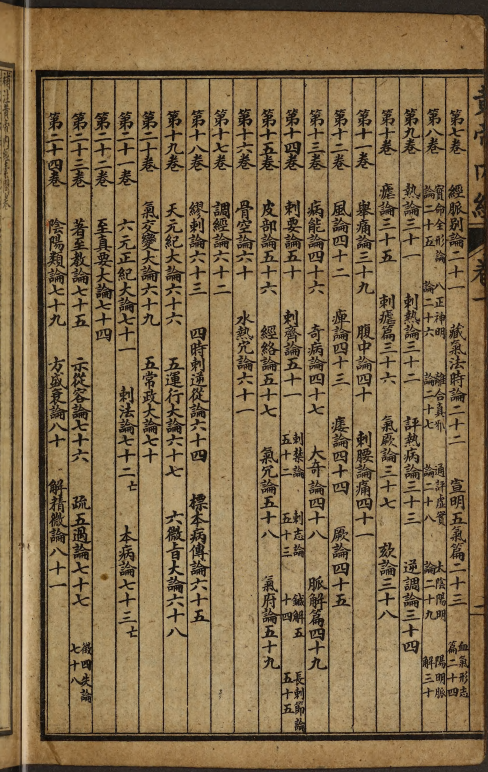 黃帝內經 卷一
第七卷 經脈別論二十一 藏氣法時論二十二 宣明五氣篇二十三 血氣形志篇二十四
第八卷 寶命全形論二十五 八正神明論二十六 離合真邪論二十七 通評虛實論二十八 太陰陽明論二十九 陽明脈解三十
第九卷 熱論三十一 刺熱論三十二 評熱病論三十三 逆調論三十四
第十卷 瘧論三十五 刺瘧篇三十六 氣厥論三十七 欬論三十八
第十一卷 舉痛論三十九 腹中論四十 刺腰論痛四十一
第十二卷 風論四十二 痺論四十三 痿論四十四 厥論四十五
第十三卷 病能論四十六 奇病論四十七 大奇論四十八 脈解篇四十九
第十四卷 刺要論五十 刺齊論五十一 刺禁論五十二 刺志論五十三 鍼解五十四 長刺節論五十五
第十五卷 皮部論五十六 經絡論五十七 氣穴論五十八 氣府論五十九
第十六卷 骨空論六十 水熱穴論六十一
第十七卷 調經論六十二
第十八卷 繆刺論六十三 四時刺逆從論六十四 標本病傳論六十五
第十九卷 天元紀大論六十六 五運行大論六十七 六微旨大論六十八
第二十卷 氣交變大論六十九 五常政大論七十
第二十一卷 六元正紀大論七十一 刺法論七十二亡 本病論七十三亡
第二十二卷 至真要大論七十四
第二十三卷 著至教論七十五 示從容論七十六 疏五過論七十七 徵四失論七十八
第二十四卷 陰陽類論七十九 方盛衰論八十 解精微論八十一